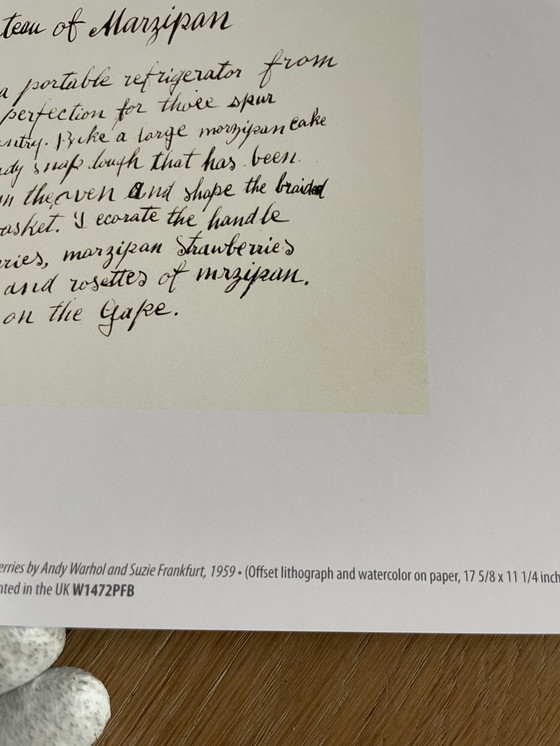 teau of Marzipan
a portable refrigerator from
perfection for those spur
entry. Bike a large morzipan cake
ndy snap dough that has been
in the oven and shape the braided
basket. Decorate the handle
rries, marzipan Strawberries
and rosettes of mrzipan.
on the Gake.
erries by Andy Warhol and Suzie Frankfurt, 1959 • (Offset lithograph and watercolor on paper, 17 5/8 x 11 1/4 inch
nted in the UK W1472PFB